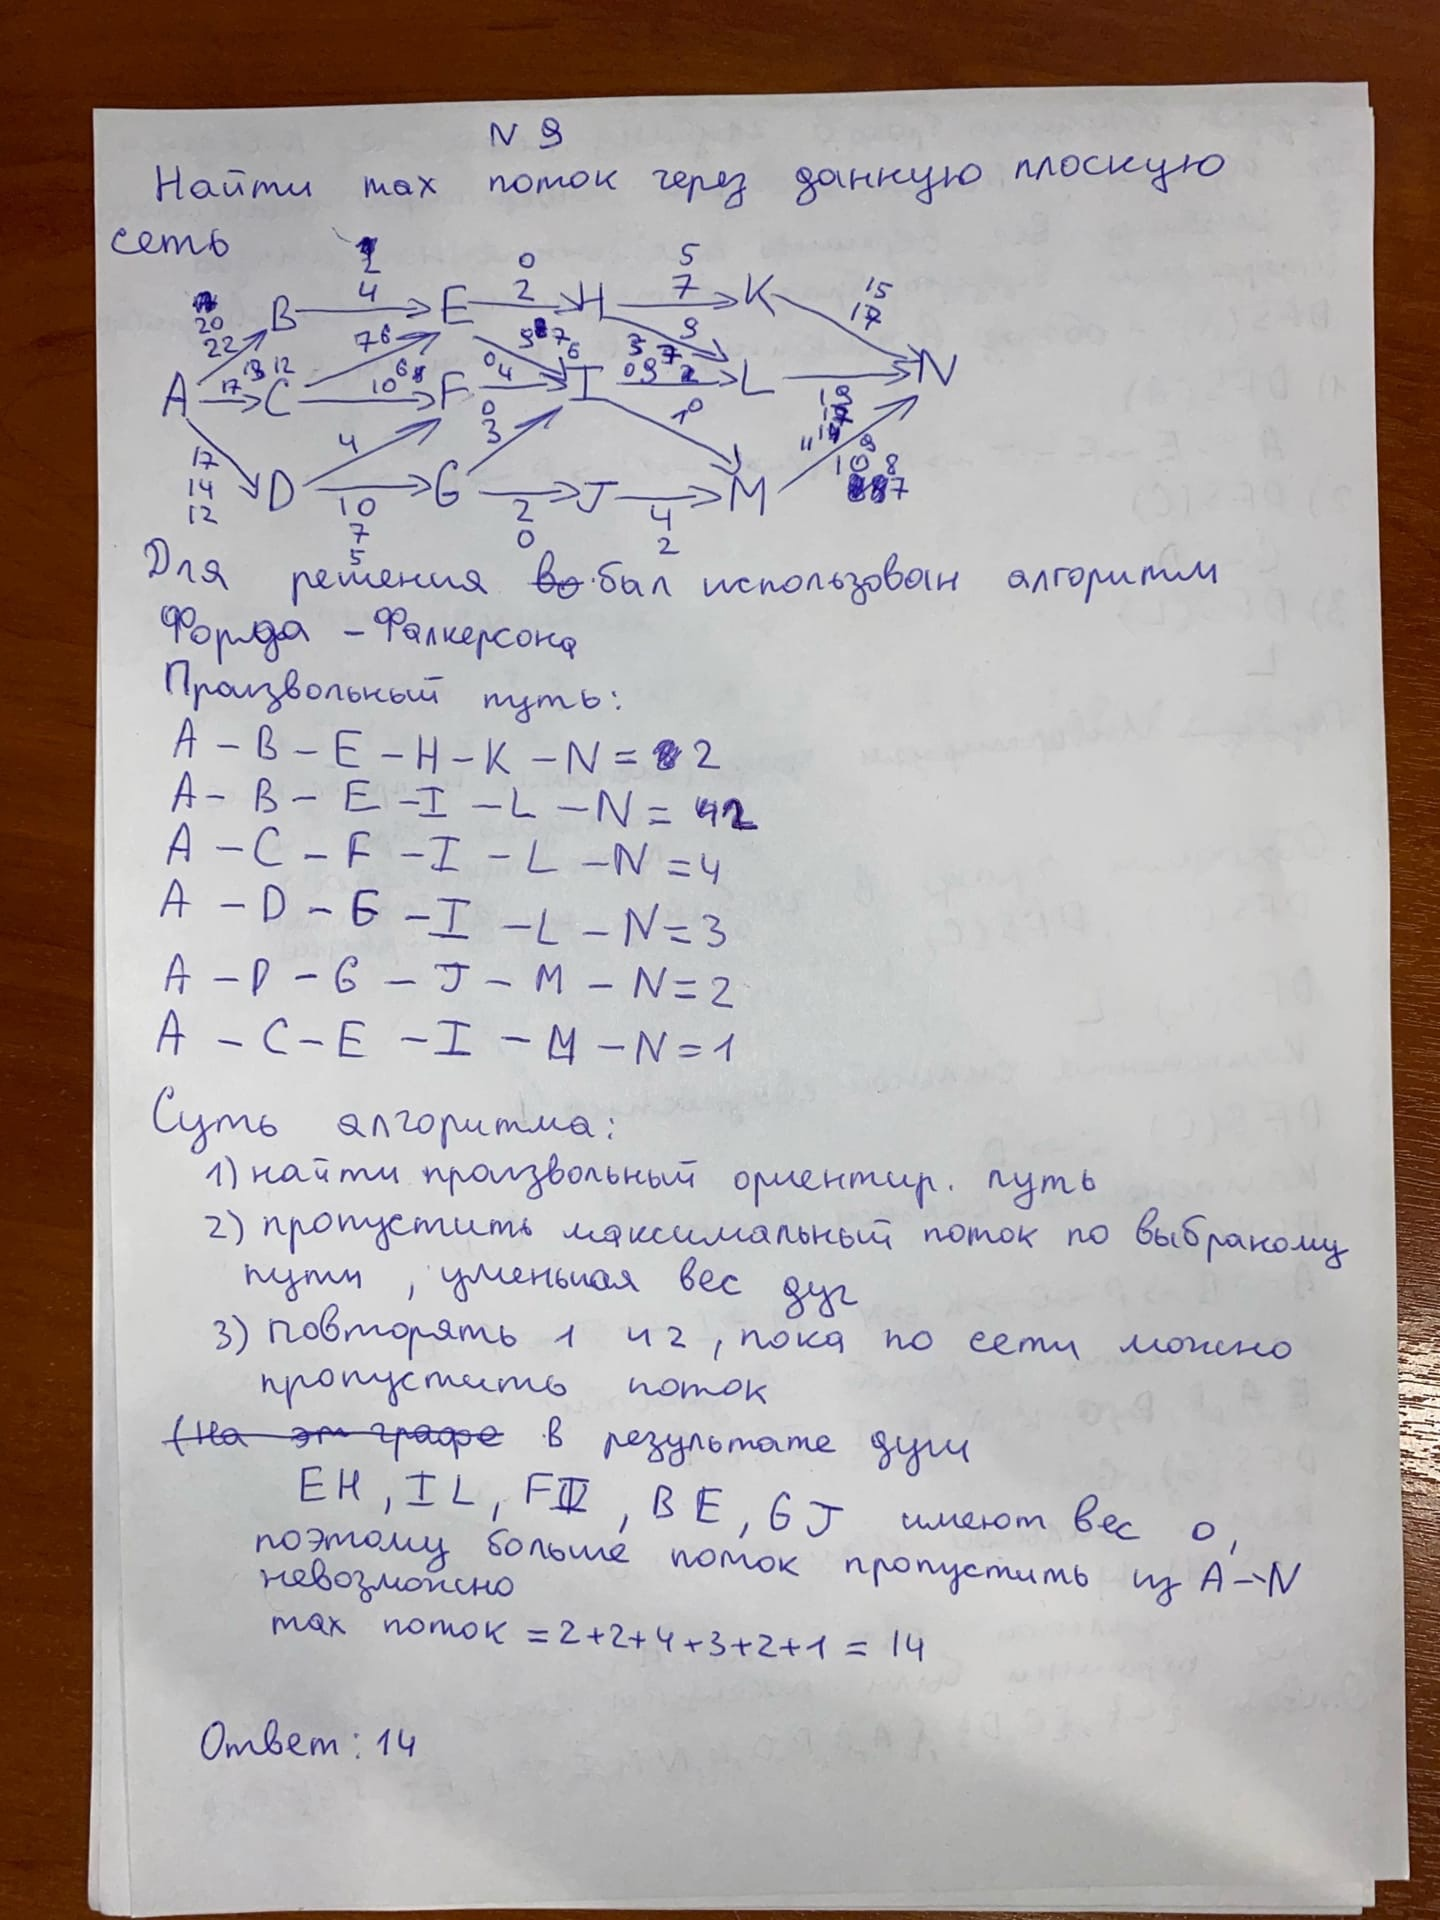 N 9
Найти max поток через данную плоскую
сеть
2 0 5
4 2 7 15
20 B E H K 17
22 7 6 9 7 6 9
17 13 12 10 6 0 4 3 7 0 9
A C F I L N
0 3 4 19
17 10 9
14 D G J M 11 10 8 7
12 10 2 4
7 0 2
5
Для решения был использован алгоритм
Форда – Фалкерсона
Произвольный путь:
A – B – E – H – K – N = 2
A – B – E – I – L – N = 2
A – C – F – I – L – N = 4
A – D – G – I – L – N = 3
A – D – G – J – M – N = 2
A – C – E – I – M – N = 1
Суть алгоритма:
1) найти произвольный ориентир. путь
2) пропустить максимальный поток по выбраному
пути , уменьшая вес дуг
3) повторять 1 и 2 , пока по сети можно
пропустить поток
(На эт графе в результате дуги
EH , IL , FI , BE , GJ имеют вес 0 ,
поэтому больше поток пропустить из A → N
невозможно
max поток = 2+2+4+3+2+1 = 14
Ответ: 14